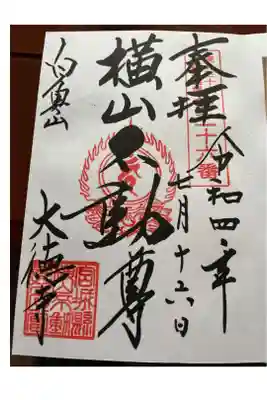 奉拝
令和四年
七月十六日
横山不動尊
白魚山
大徳寺